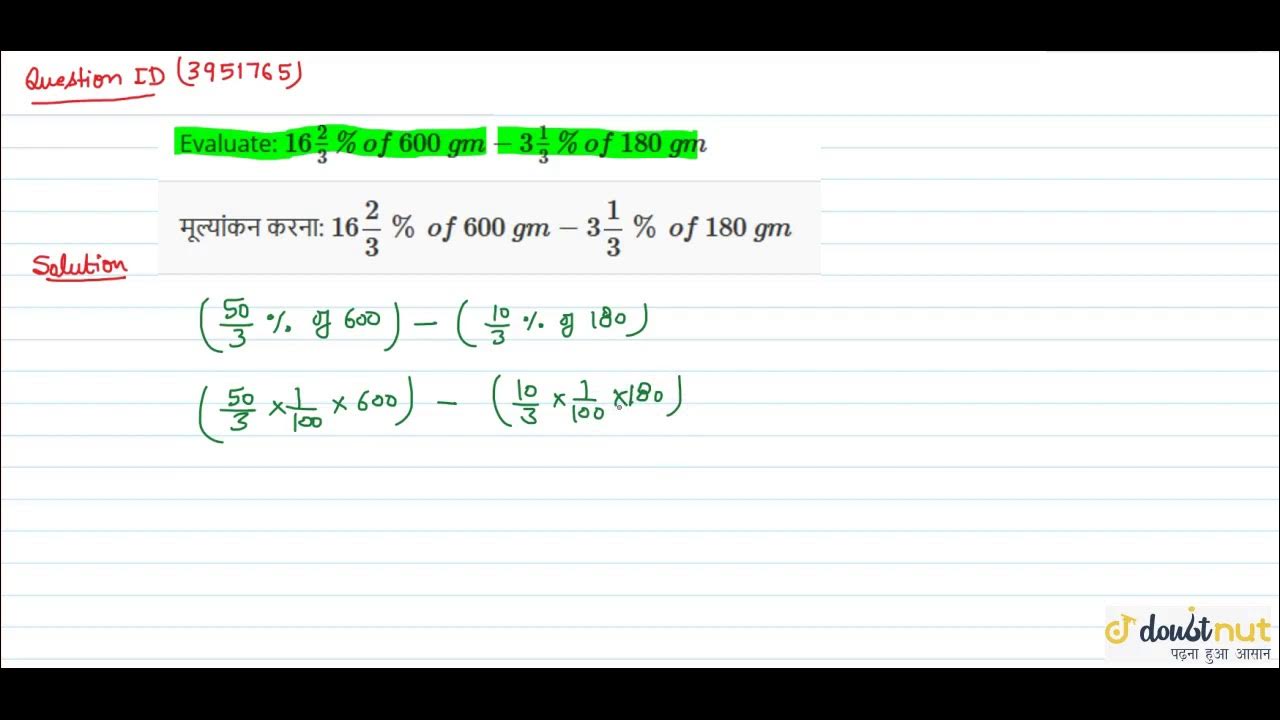 Question ID (3951765)
Evaluate: 16 2/3 % of 600 gm − 3 1/3 % of 180 gm
मूल्यांकन करना: 16 2/3 % of 600 gm − 3 1/3 % of 180 gm
Solution
(50/3 % of 600) − (10/3 % of 180)
(50/3 × 1/100 × 600) − (10/3 × 1/100 × 180)
doubtnut
पढ़ना हुआ आसान